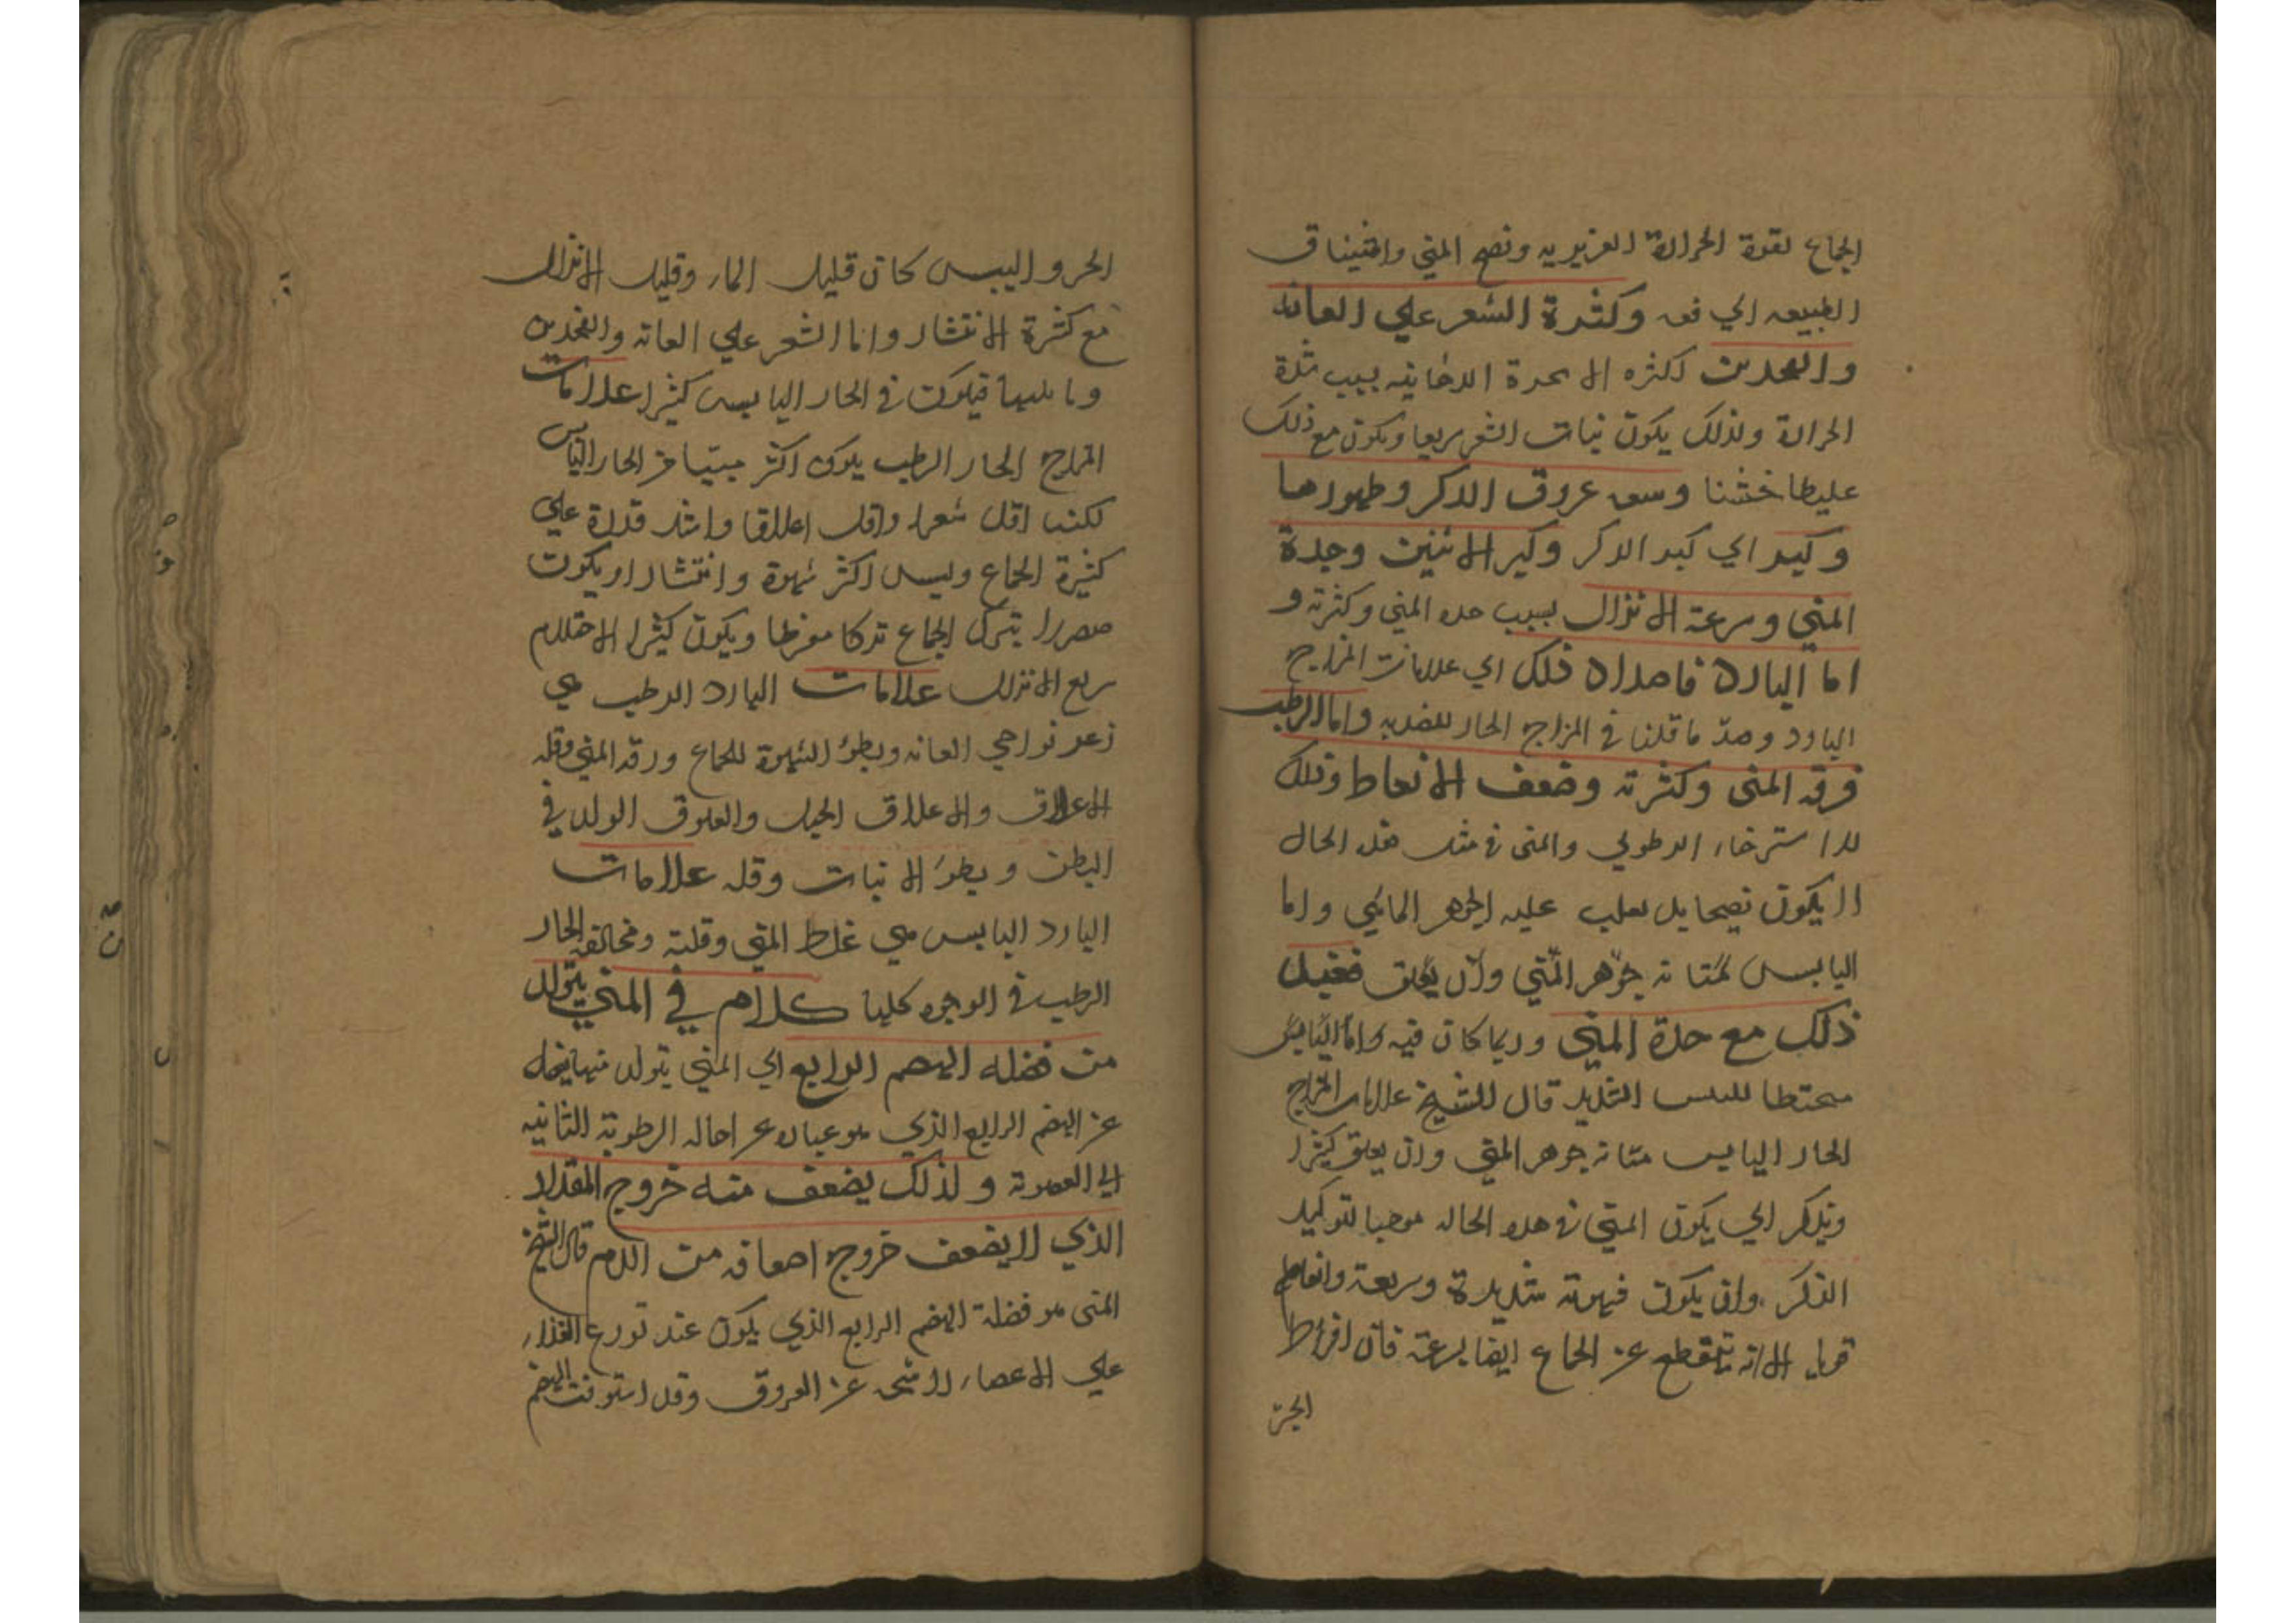 الجماع لقوة الحرارة الغزيريه ونضج المني واشتياق
الطبيعه الي فعه وكثرة الشعر علي العانه
والفخدين لكثره الابخرة الدخانيه بسبب شدة
الحرارة ولذلك يكون نبات الشعر سريعا ويكون مع ذلك
غليظا خشنا وسعه عروق الذكر وظهورها
وكبره اي كبر الذكر وكبر الانثيين وحدة
المني وسرعة الانزال بسبب حده المني وكثرته و
اما الباردة فاضداد ذلك اي علامات المزاج
البارد وضد ما قلنا في المزاج الحار للضديه واما الرطب
فرقه المني وكثرته وضعف الانعاظ وذلك
لاسترخاء الرطوبي والمني في مثل هذه الحال
لا يكون نضيجا بل يغلب عليه الجوهر المائي واما
اليابس لمتانه جوهر المني وان يعلق
ذلك مع حدة المني وربما كان فيه واما اليابس
محتطا لليبس الشديد قال الشيخ علامات المزاج
الحار اليابس متانه جوهر المني وان يعلق كثيرا
ويذكر اي يكون المني في هذه الحاله موجبا لتوكيد
الذكر وان يكون شهوته شديدة وسريعة وانعاظ
قويا الا انه ينقطع عن الجماع ايضا بسرعة فان افرط
الحر
الحر واليبس كان قليل الماء وقليل الانزال
مع كثرة الانتشار واما الشعر علي العانه والفخدين
وما يليها فيكون في الحار اليابس كثيرا علامات
المزاج الحار الرطب يكون اكثر منيا من الحار اليابس
لكنه اقل شعرا واقل اعلاقا واشد قدرة علي
كثيرة الجماع وليس اكثر شهوة وانتشارا ويكون
متضررا بترك الجماع تركا مفرطا ويكون كثير الاحتلام
سريع الانزال علامات البارد الرطب هي
زعر نواحي العانه وبطؤ الشهوة للجماع ورقه المني وقله
الاعلاق والاعلاق الحبل والعلوق الولد في
البطن وبطؤ الانبات وقله علامات
البارد اليابس هي غلظ المني وقلته ومخالفه الحار
الرطب في الوجوه كلها كلام في المني يتولد
من فضله الهضم الرابع اي المني يتولد
عن الهضم الرابع الذي هو عباره عن احاله الرطوبة الثانيه
الي العضوية ولذلك يضعف منه خروج المقدار
الذي لا يضعف خروج اضعافه من الدم قال الشيخ
المني هو فضلة الهضم الرابع الذي يكون عند توزع الغذاء
علي الاعضاء راشحه عن العروق وقد استوفت الهضم